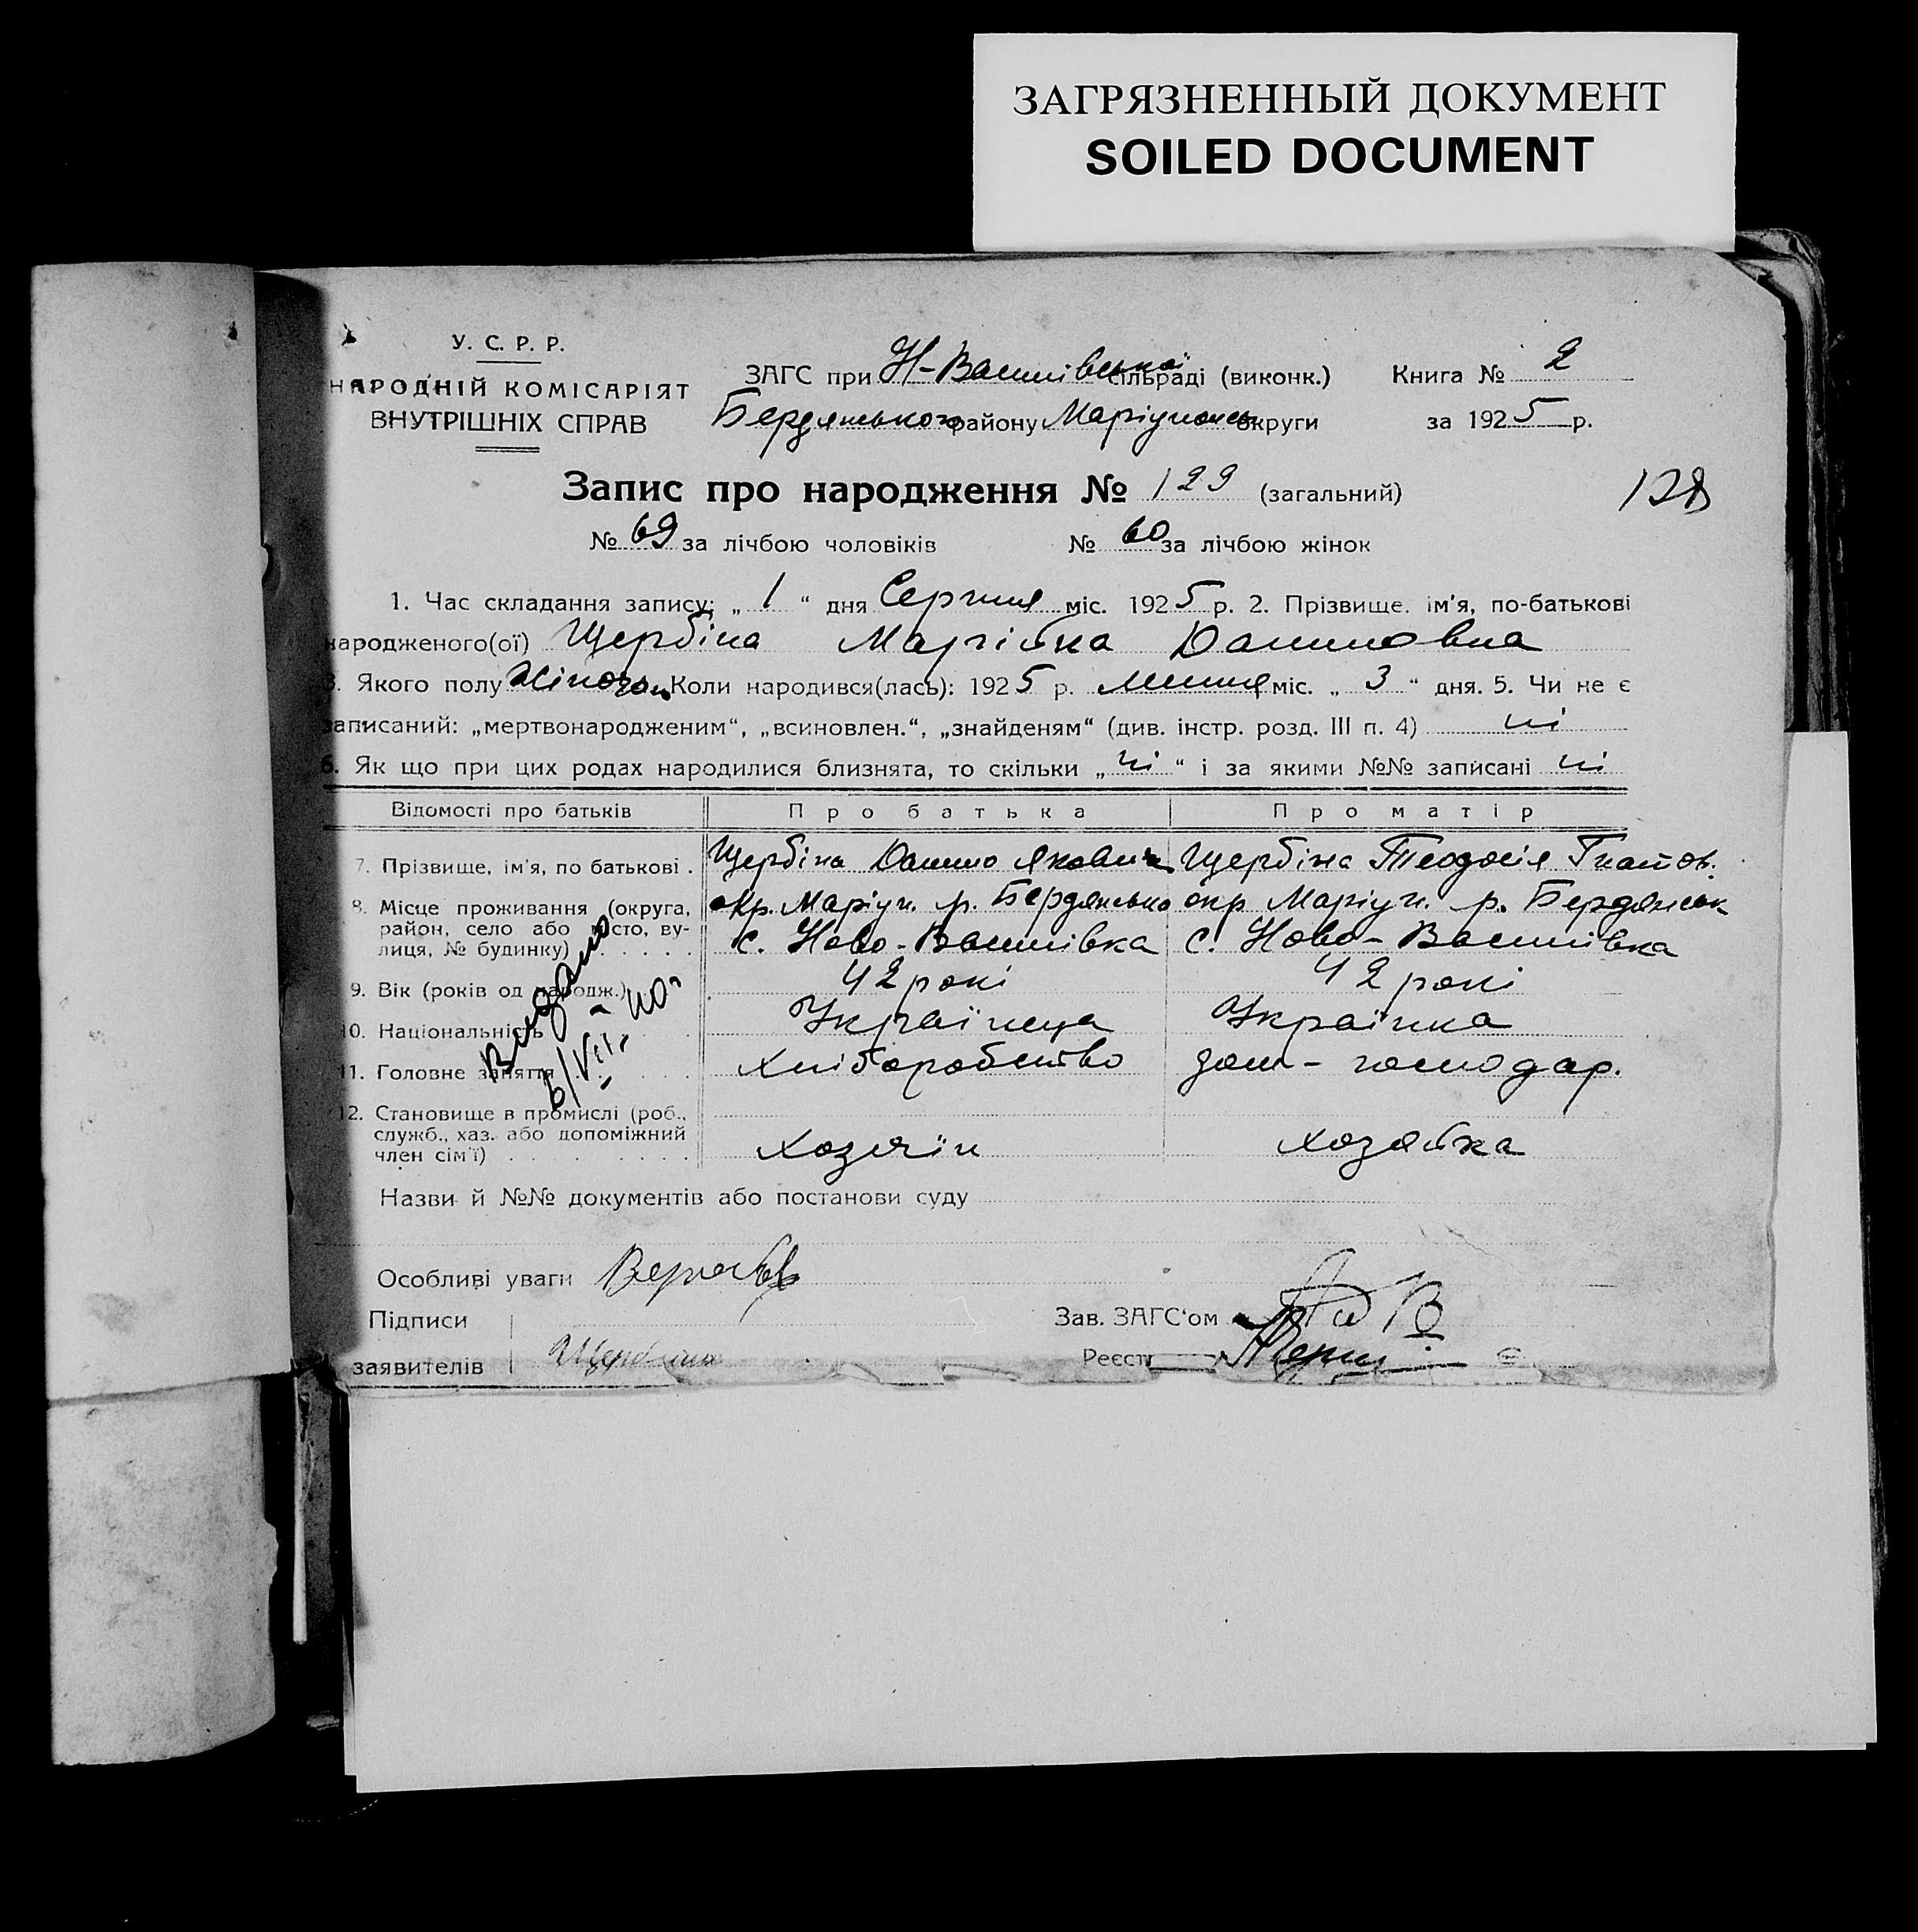 ЗАГРЯЗНЕННЫЙ ДОКУМЕНТ
SOILED DOCUMENT
У. С. Р. Р.
НАРОДНІЙ КОМІСАРІЯТ
ВНУТРІШНІХ СПРАВ
ЗАГС при Н-Василівській сільраді (виконк.) Книга № 2
Бердянського району Маріупольськ округи за 1925 р.
Запис про народження № 129 (загальний)
128
№ 69 за лічбою чоловіків № 60 за лічбою жінок
1. Час складання запису: „ 1 “ дня Серпня міс. 1925 р. 2. Прізвище. ім'я, по-батькові
народженого(ої) Щербіна Марійка Даниловна
3. Якого полу Жіночої Коли народився(лась): 1925 р. Липня міс. „ 3 “ дня. 5. Чи не є
записаний: „мертвонародженим“, „всиновлен.“, „знайденям“ (див. інстр. розд. III п. 4) ні
6. Як що при цих родах народилися близнята, то скільки „ ні “ і за якими №№ записані ні
Відомості про батьків Про батька Про матір
7. Прізвище, ім'я, по батькові . Щербіна Данило Якович Щербіна Теодосія Гнатов.
8. Місце проживання (округа, окр. Маріуп. р. Бердянсько окр Маріуп. р. Бердянськ
район, село або місто, ву-
лиця, № будинку) . . . . . с. Ново-Василівка с. Ново-Василівка
9. Вік (років од народж.) 42 рокі 42 рокі
10. Національність Українець Українка
11. Головне заняття Хліборобство дом-господар.
12. Становище в промислі (роб.,
служб., хаз. або допоміжний
член сім'ї) . . . . . . . . . Хозяїн хозяйка
Видано
Назви й №№ документів або постанови суду
Особливі уваги
Підписи Зав. ЗАГС'ом
заявителів Щербина Реєстр